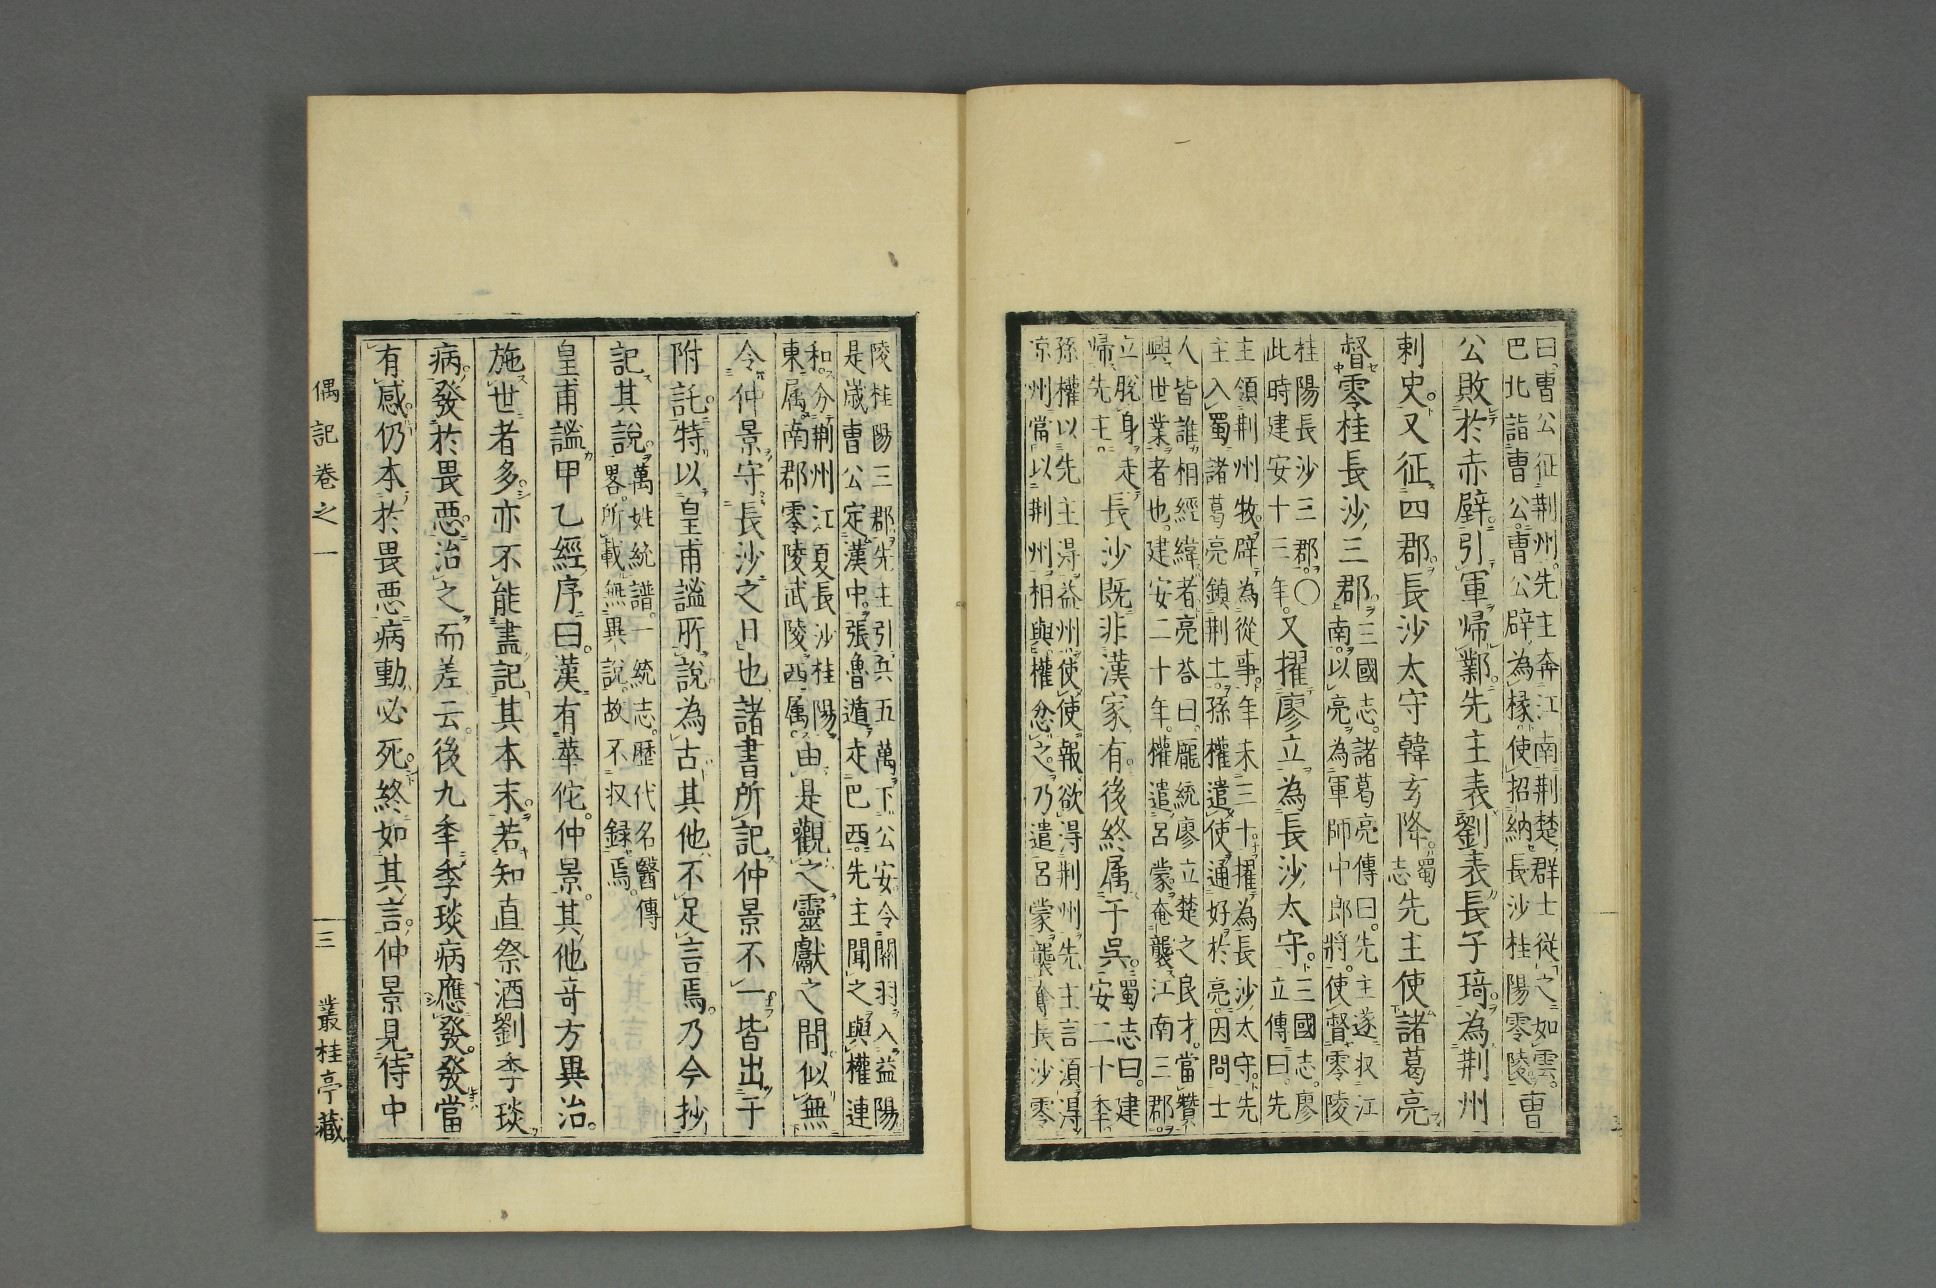 曰曹公征荆州先主奔江南荆楚群士從之如雲曹
巴北詣曹公曹公辟為掾使招納長沙桂陽零陵
公敗於赤壁引軍帰鄴先主表劉表長子琦為荆州
刺史又征四郡長沙太守韓玄降蜀志先主使諸葛亮
督零桂長沙三郡三國志諸葛亮傳曰先主遂収江
南以亮為軍師中郎將使督零陵
桂陽長沙三郡〇
此時建安十三年又擢廖立為長沙太守三國志廖
立傳曰先
主領荆州牧辟為從事年未三十擢為長沙太守先
主入蜀諸葛亮鎮荆土孫權遣使通好於亮因問士
人皆誰相經緯者亮荅曰龐統廖立楚之良才當贊
興世業者也建安二十年權遣呂蒙奄襲江南三郡
立脫身走
帰先主長沙既非漢家有後終属于呉蜀志曰建
安二十年
孫權以先主得益州使使報欲得荆州先主言須得
凉州當以荆州相與權忿之乃遣呂蒙襲奪長沙零
陵桂陽三郡先主引兵五萬下公安令關羽入益陽
是歲曹公定漢中張魯遁走巴西先主聞之與權連
和分荆州江夏長沙桂陽
東属南郡零陵武陵西属由是觀之靈獻之間似無
令仲景守長沙之日也諸書所記仲景不一皆出于
附託特以皇甫謐所說為古其他不足言焉乃今抄
記其說萬姓統譜一統志歷代名醫傳
畧所載無異說故不収録焉
皇甫謐甲乙經序曰漢有華佗仲景其他竒方異治
施世者多亦不能盡記其本末若知直祭酒劉季琰
病發於畏惡治之而差云後九年季琰病應發發當
有感仍本於畏惡病動必死終如其言仲景見侍中
偶記卷之一
三
叢桂亭藏